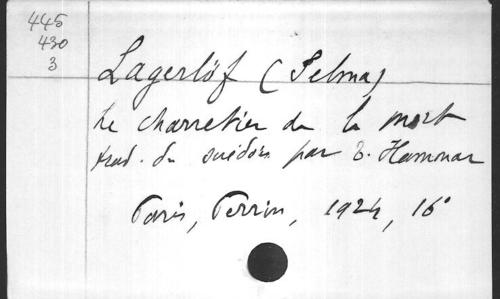 445
430
3
Lagerlöf (Selma)
Le charretier de la mort
trad. du suédois par T. Hammar
Paris, Perrin, 1924, 16°